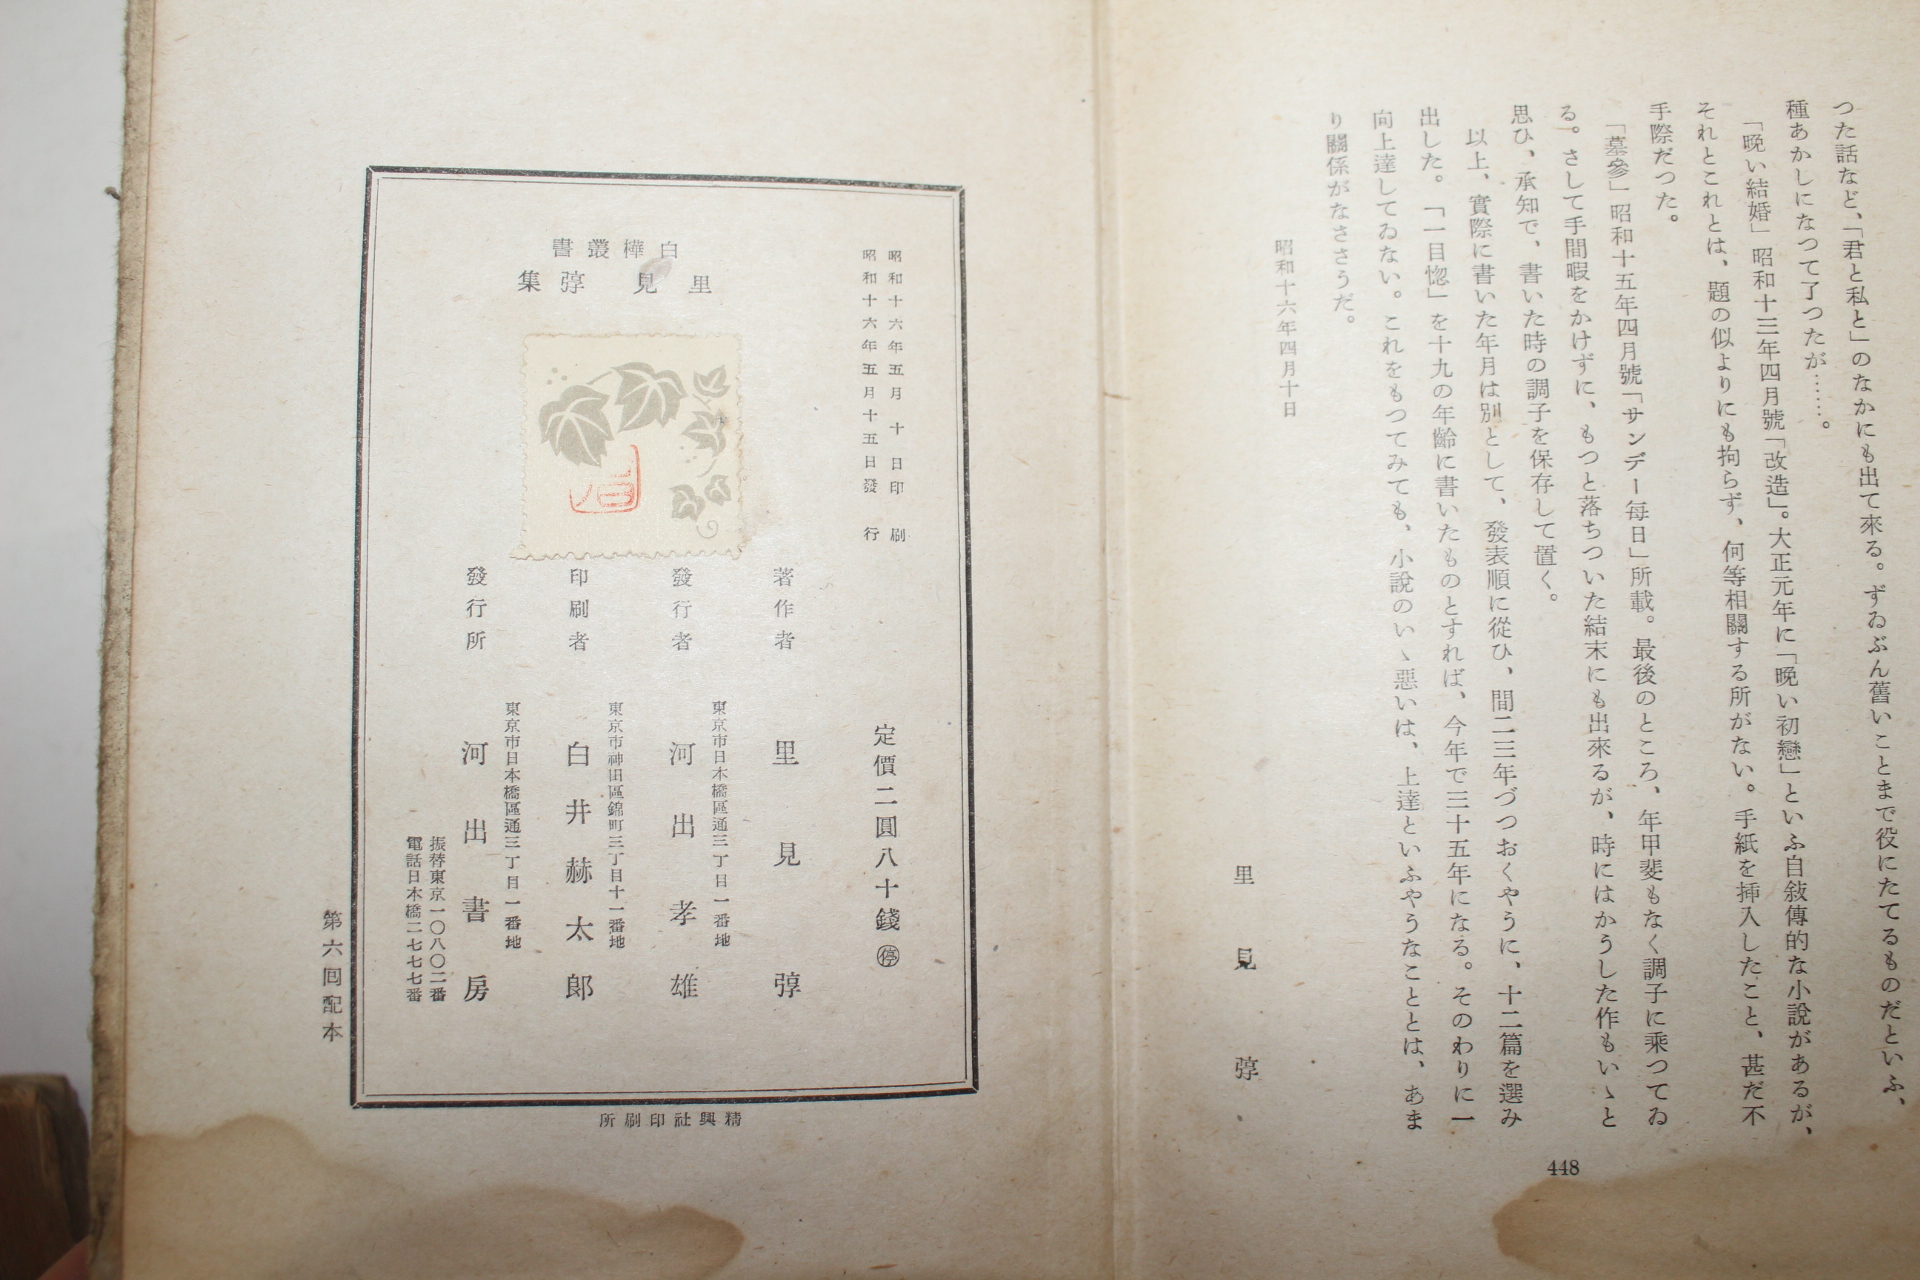 つた話など、「君と私と」のなかにも出て來る。ずゐぶん舊いことまで役にたてるものだといふ、
種あかしになつて了つたが……。
「晩い結婚」昭和十三年四月號「改造」。大正元年に「晩い初戀」といふ自敍傳的な小說があるが、
それとこれとは、題の似よりにも拘らず、何等相關する所がない。手紙を挿入したこと、甚だ不
手際だつた。
「墓參」昭和十五年四月號「サンデー每日」所載。最後のところ、年甲斐もなく調子に乘つてゐ
る。さして手間暇をかけずに、もつと落ちついた結末にも出來るが、時にはかうした作もいゝと
思ひ、承知で、書いた時の調子を保存して置く。
以上、實際に書いた年月は別として、發表順に從ひ、間二三年づつおくやうに、十二篇を選み
出した。「一目惚」を十九の年齡に書いたものとすれば、今年で三十五年になる。そのわりに一
向上達してゐない。これをもつてみても、小說のいゝ惡いは、上達といふやうなこととは、あま
り關係がなささうだ。
昭和十六年四月十日
里見弴
448
昭和十六年五月十日印刷
昭和十六年五月十五日發行
定價二圓八十錢 ㊡
白樺叢書
里見弴集
著作者 里見弴
東京市日本橋區通三丁目一番地
發行者 河出孝雄
東京市神田區錦町三丁目十一番地
印刷者 白井赫太郎
東京市日本橋區通三丁目一番地
發行所 河出書房
振替東京一〇八〇二番
電話日本橋二七七七番
第六囘配本
精興社印刷所